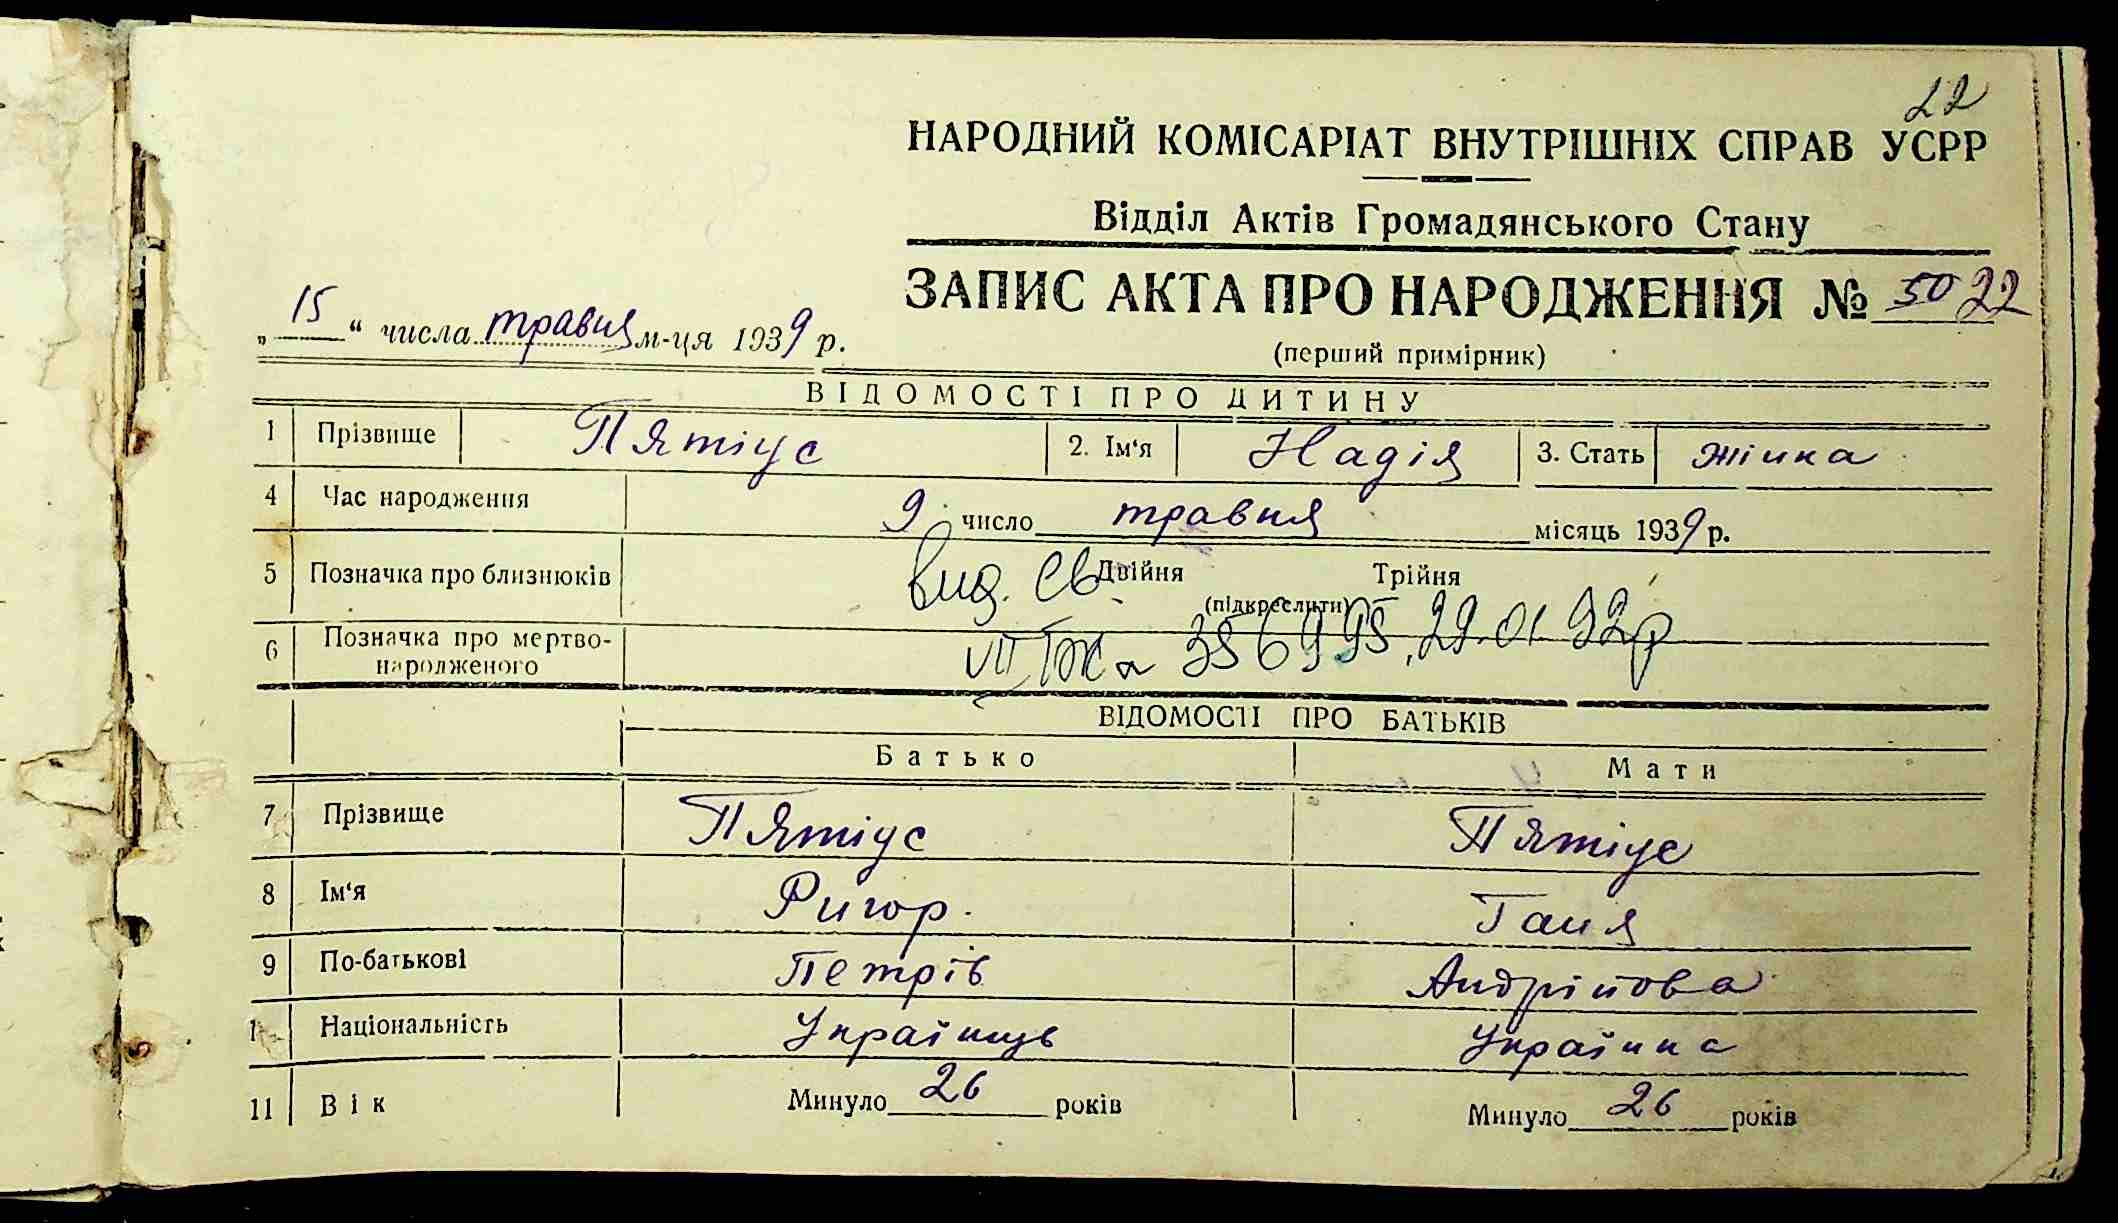 22
НАРОДНИЙ КОМІСАРІАТ ВНУТРІШНІХ СПРАВ УСРР
Відділ Актів Громадянського Стану
ЗАПИС АКТА ПРО НАРОДЖЕННЯ № 50 22
„ 15 “ числа травня м-ця 1939 р.
(перший примірник)
ВІДОМОСТІ ПРО ДИТИНУ
1 Прізвище Пятіус 2. Ім‘я Надія 3. Стать жінка
4 Час народження 9 число травня місяць 1939 р.
5 Позначка про близнюків Двійня Трійня
(підкреслити)
вид. св.
6 Позначка про мертво-
народженого
356995, 29.01.92р
ВІДОМОСТІ ПРО БАТЬКІВ
Батько Мати
7 Прізвище Пятіус Пятіус
8 Ім‘я Ригор Ганя
9 По-батькові Петрів Андріїова
1 Національність Українць Українка
11 Вік Минуло 26 років Минуло 26 років